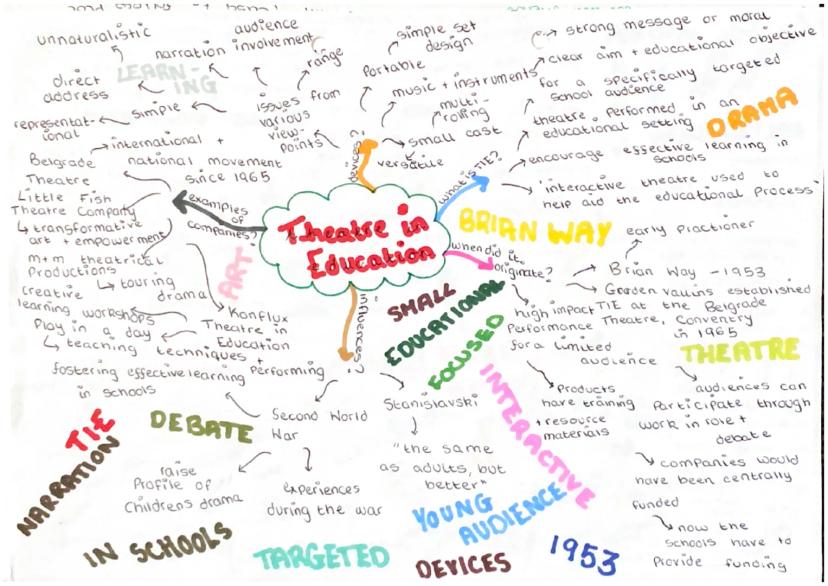 unnaturalistic
audience
involvement
narration
LEARN-
ING
direct
address
simple
represental-
ional
issues from
various
view-
points
range
simple set
design
Portable
music + instruments
multi-
roling
small cast
versatile
devices?
strong message or moral
clear aim + educational objective
for a specifically targeted
school audience
theatre performed in an
educational setting
DRAMA
encourage effective learning in
schools
'interactive theatre used to
help aid the educational Process'
what is TIE?
international +
national movement
since 1965
Belgrade
Theatre
Little Fish
Theatre Company
↳ transformative
art + empowerment
m+m theatrical
Productions
↳ touring
drama
creative
learning workshops
Play in a day
↳ teaching techniques +
fostering effective learning
in schools
Konflux
Theatre in
Education
Performing
examples
of
companies?
ART
Theatre in
Education
BRIAN WAY
when did it
originate?
early Practioner
Brian Way - 1953
Gorden vallins established
TIE at the Belgrade
Theatre, Coventry
in 1965
high impact
Performance
for a limited
audience
THEATRE
SMALL
EDUCATIONAL
FOCUSED
INTERACTIVE
Products
have training
+ resource
materials
audiences can
Participate through
work in role +
debate
companies would
have been centrally
funded
now the
schools have to
Provide funding
influences?
Second World
War
Stanislavski
"the same
as adults, but
better"
raise
Profile of
Childrens drama
experiences
during the war
TIE
NARRATION
DEBATE
IN SCHOOLS
TARGETED
YOUNG
AUDIENCE
DEVICES
1953